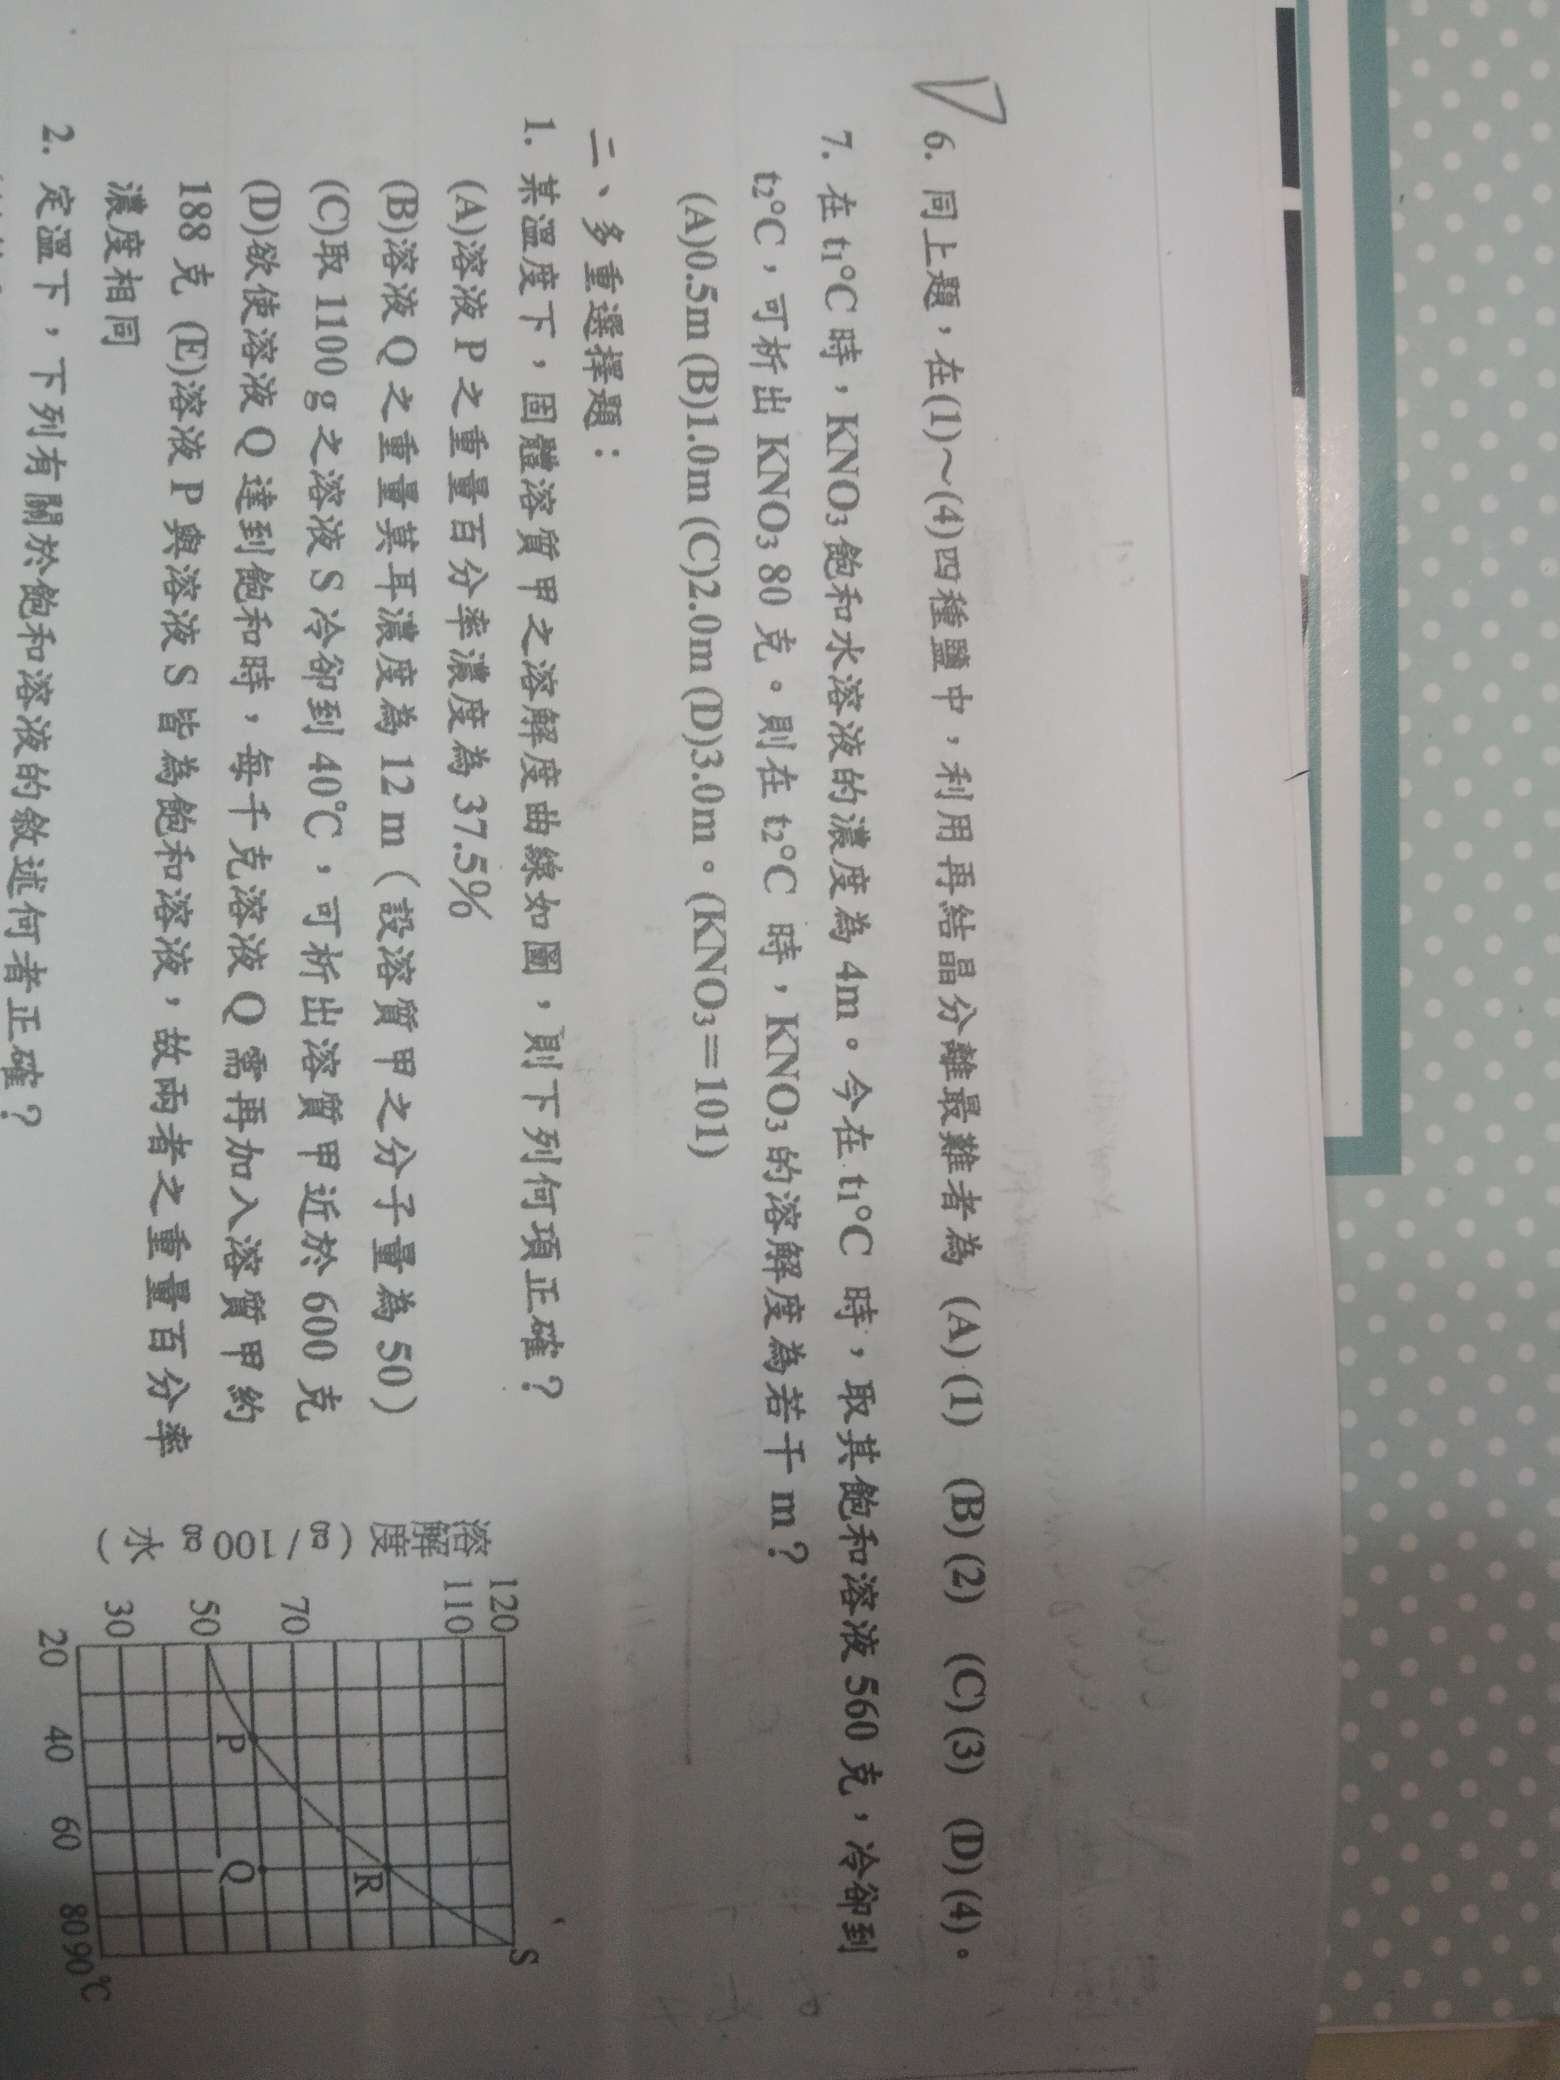 6. 同上題，在(1)～(4)四種鹽中，利用再結晶分離最難者為 (A) (1) (B) (2) (C) (3) (D) (4)。
7. 在 t₁°C 時，KNO₃ 飽和水溶液的濃度為 4m。今在 t₁°C 時，取其飽和溶液 560 克，冷卻到
t₂°C，可析出 KNO₃ 80 克。則在 t₂°C 時，KNO₃ 的溶解度為若干 m？
(A)0.5m (B)1.0m (C)2.0m (D)3.0m。(KNO₃＝101)
二、多重選擇題：
1. 某溫度下，固體溶質甲之溶解度曲線如圖，則下列何項正確？
(A)溶液 P 之重量百分率濃度為 37.5%
(B)溶液 Q 之重量莫耳濃度為 12 m（設溶質甲之分子量為 50）
(C)取 1100 g 之溶液 S 冷卻到 40℃，可析出溶質甲近於 600 克
(D)欲使溶液 Q 達到飽和時，每千克溶液 Q 需再加入溶質甲約
188 克 (E)溶液 P 與溶液 S 皆為飽和溶液，故兩者之重量百分率
濃度相同
溶解度（g/100 g 水）
120
110
70
50
30
20 40 60 80 90℃
P
Q
R
S
2. 定溫下，下列有關於飽和溶液的敘述何者正確？